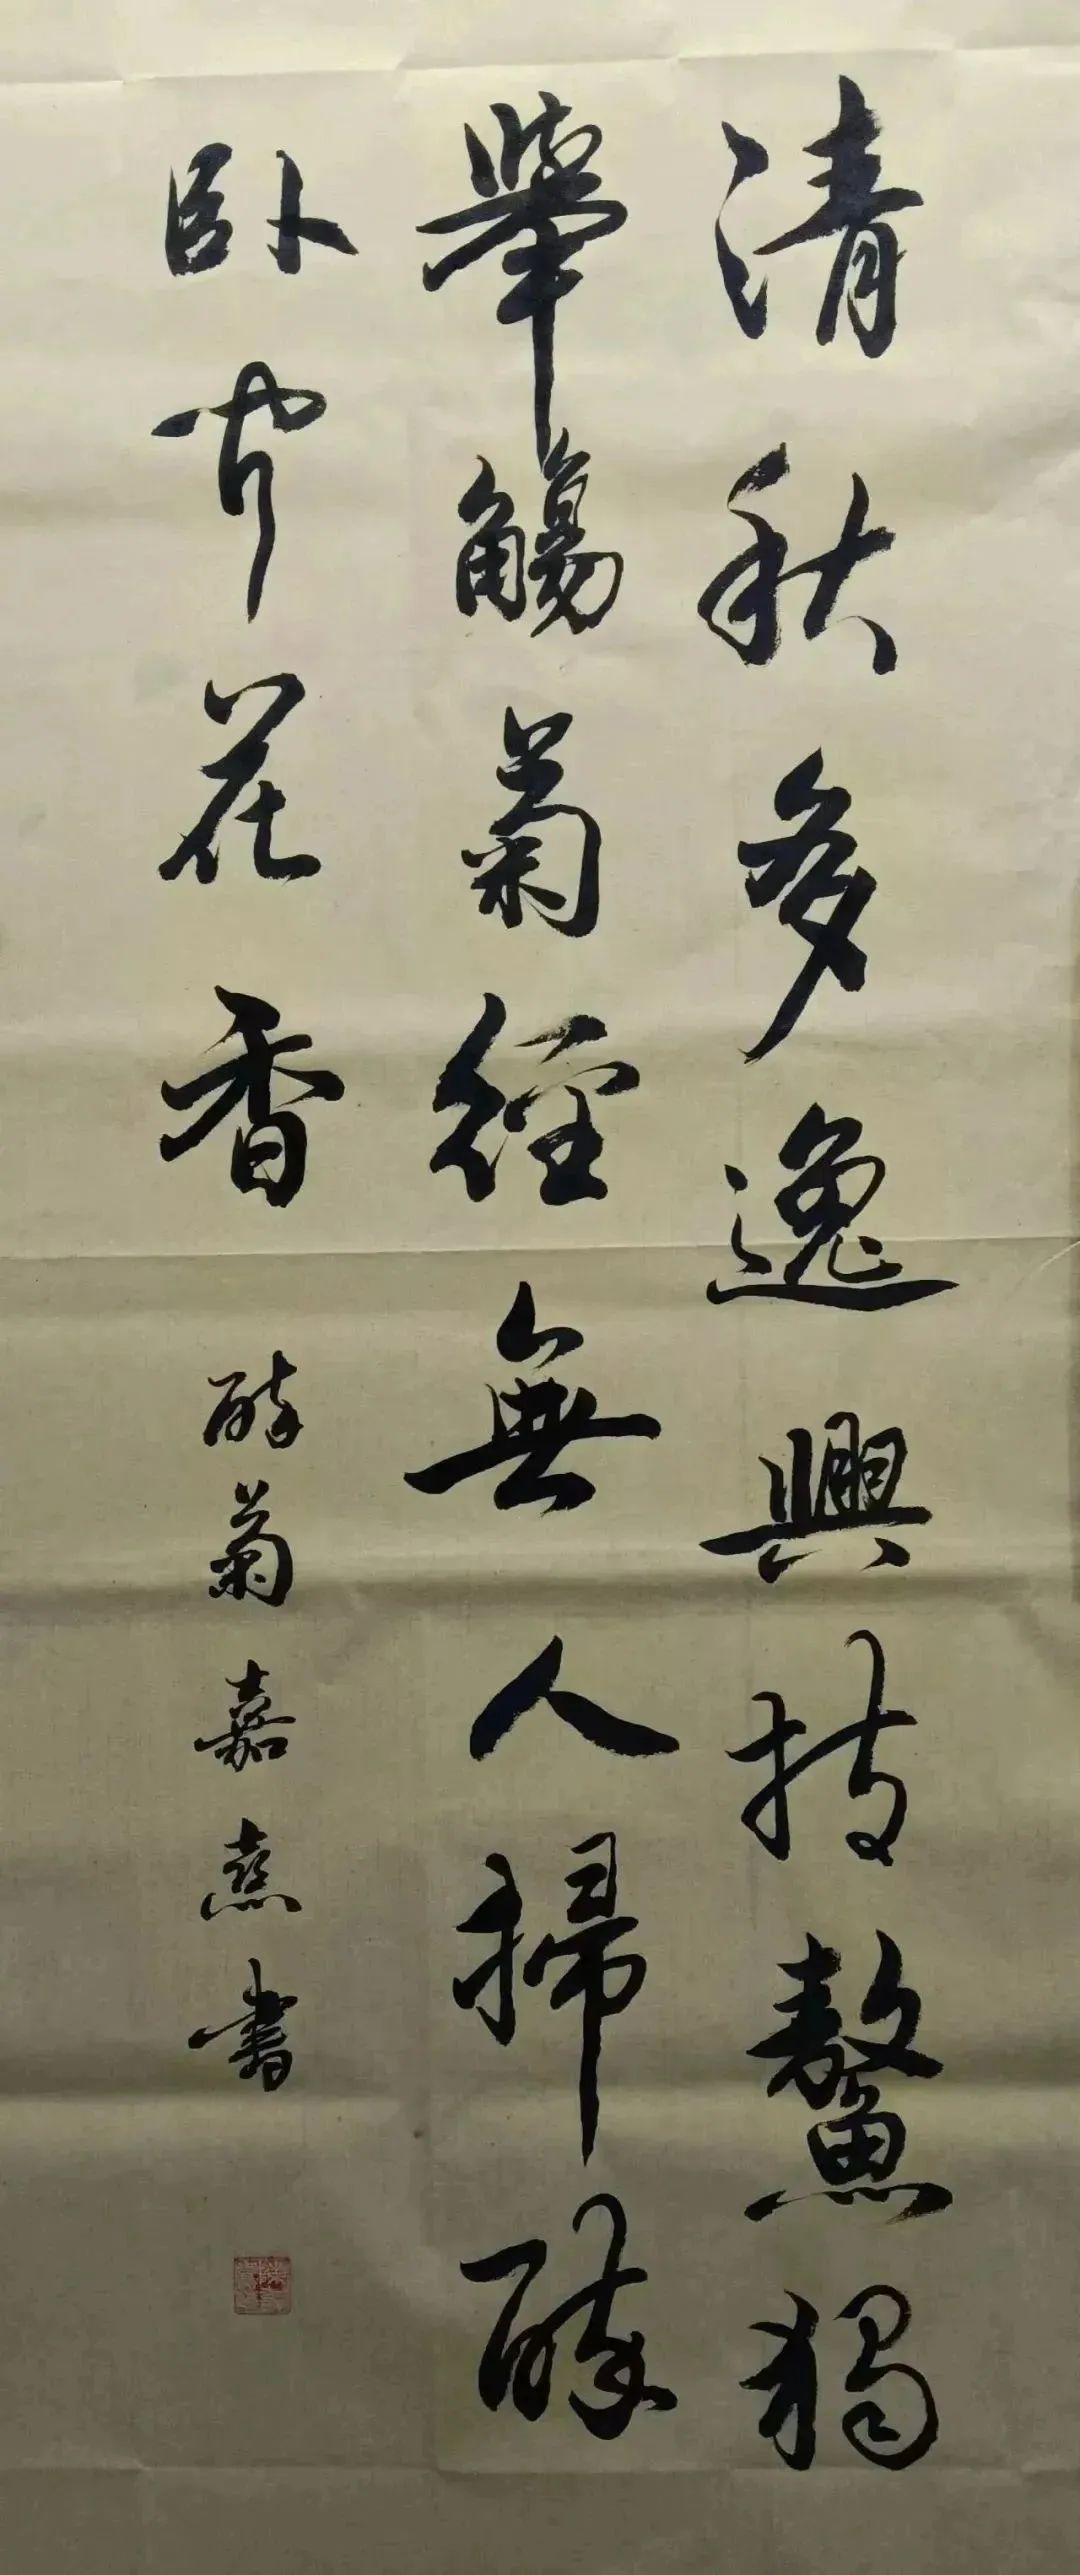 清秋多逸興持鰲獨
舉觴菊徑無人掃醉
臥聞花香
醉菊嘉燕書